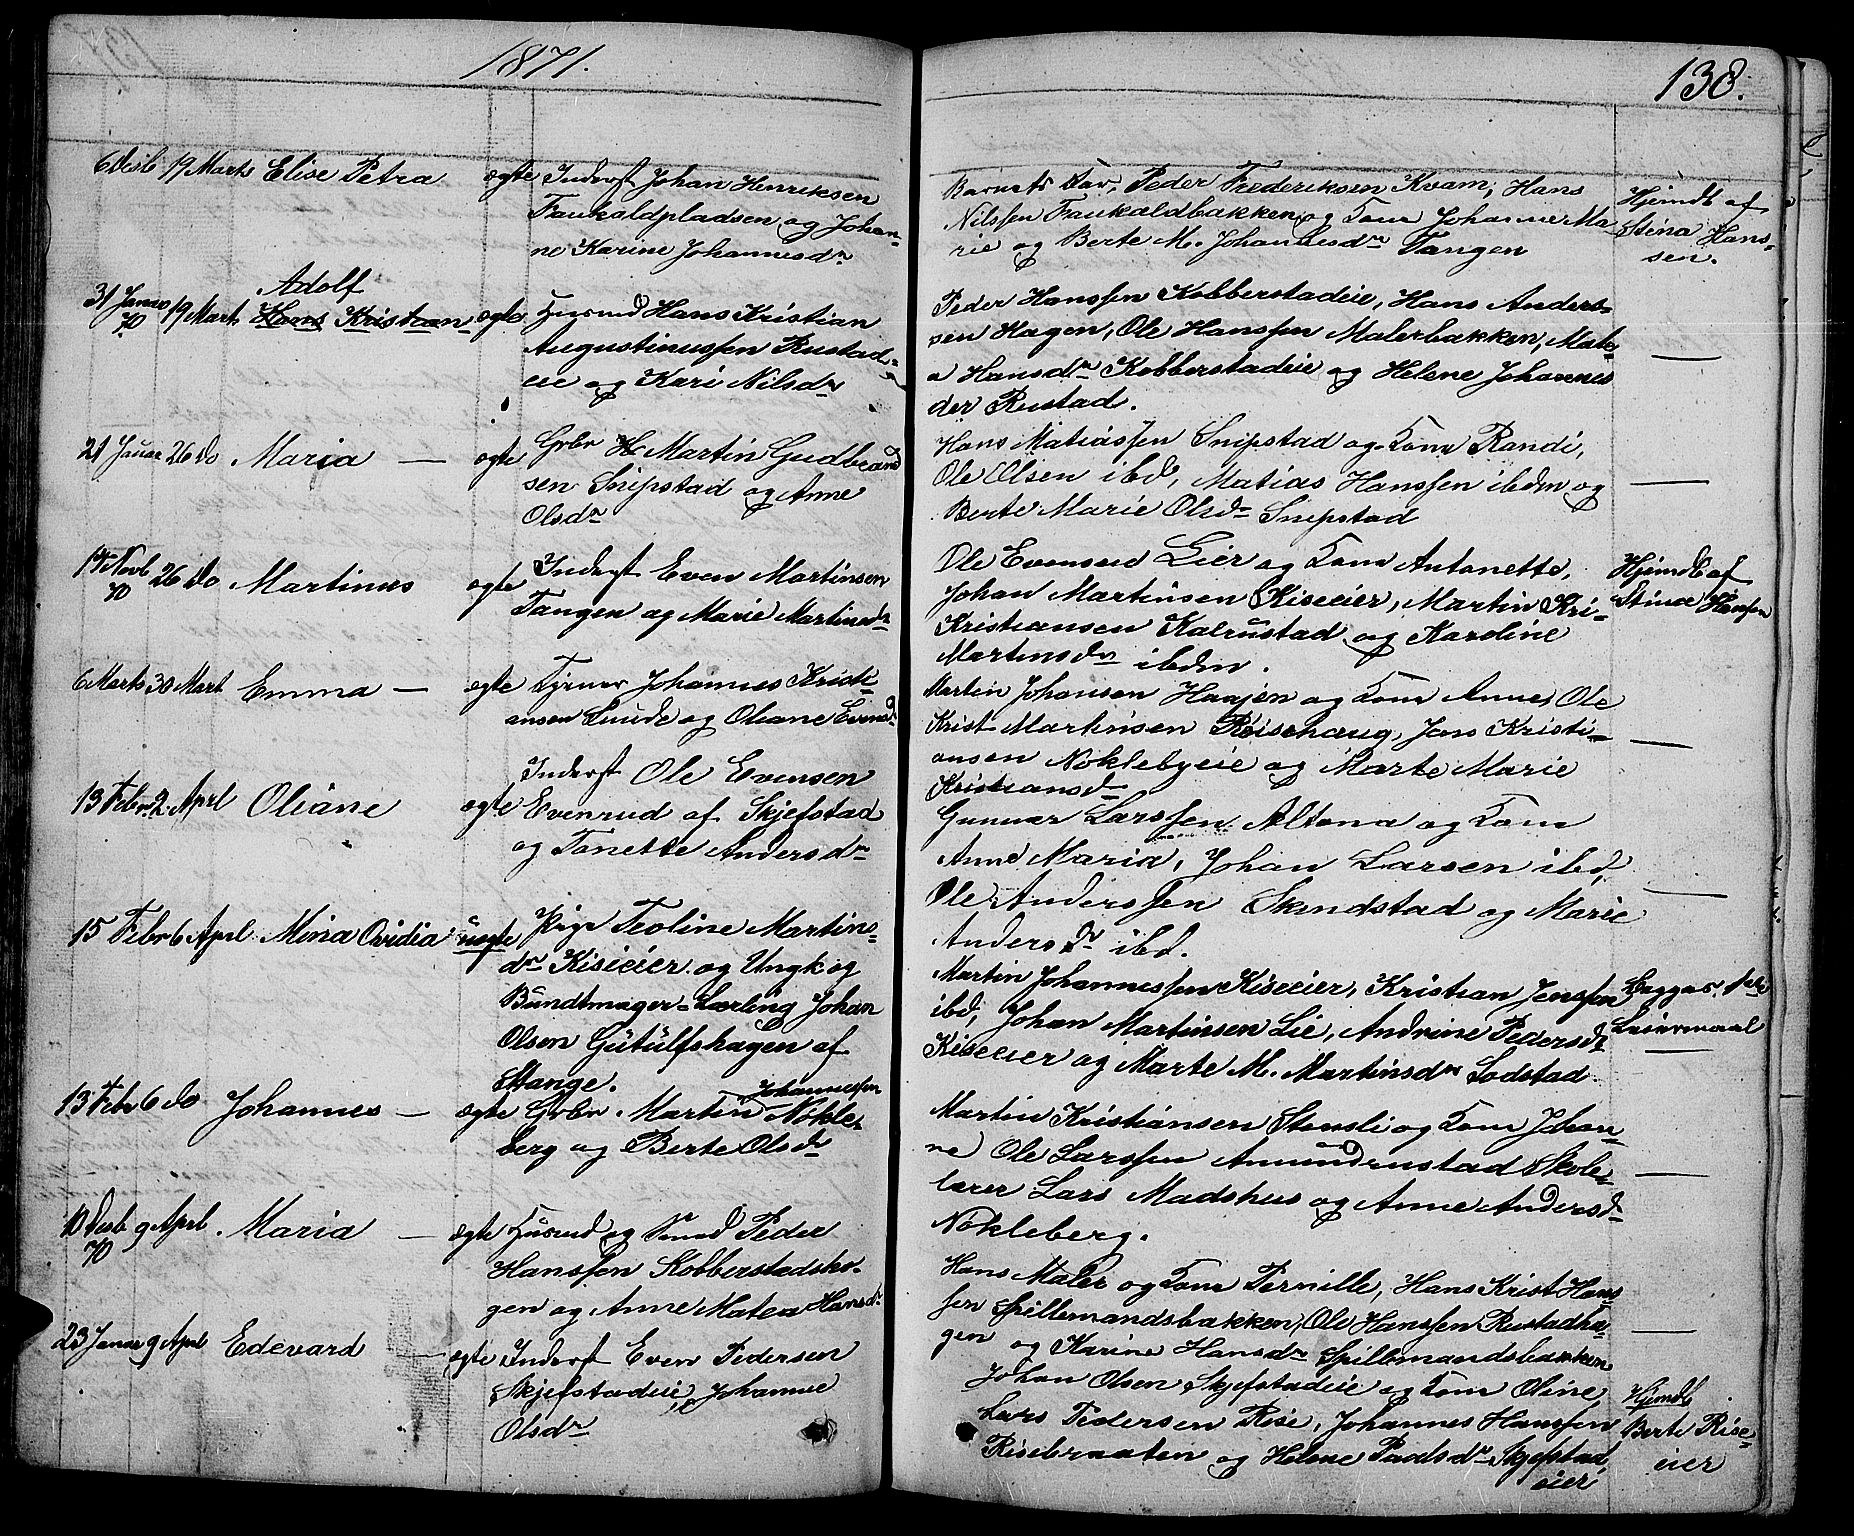 1871.
138.
6 Decb 19 Marts Elise Petra ægte Inderst Johan Henriksen
Faukaldpladsen og Johan-
ne Karine Johannesdr
Barnets Far, Peder Frederiksen Kvam, Hans
Nilssen Faukaldbakken og Kone Johanne Ma-
rie og Berte M. Johannesdr Tangen
Hjemdb af
Stina Hans-
sen.
Adolf
31 Janar 70 19 Mart Hans Kristian ægte Husmd Hans Kristian
Augustinussen Rustad-
eie og Kari Nilsdr
Peder Hanssen Kobberstadeie, Hans Anders-
sen Hagen, Ole Hanssen Malerbakken, Mate-
a Hansdr Kobberstadeie og Helene Johannes
der Rustad.
21 Januar 26 do Maria — ægte Grbr H Martin Gudbrand
sen Snipstad og Anne
Olsdr
Hans Matiassen Snipstad og Kone Randi,
Ole Olsen ibd, Matias Hanssen ibdm og
Berte Marie Olsdr Snipstad
14 Novb 70 26 do Martinus ægte Inderst Even Martinsen
Tangen og Marie Martinsdr
Ole Evensen Lier og Kone Antonette,
Johan Martinsen Kiseeier, Martin Kri-
Kristiansen Kalrustad og Karoline
Martinsdr ibdm.
Hjemdb af
Stina Hansen
6 Marts 30 Mart Emma — ægte Tyrner Johannes Kristi-
ansen Lunde og Oliane Evensdr
Martin Johansen Haajen og Kone Anne, Ole
Krist Martinsen Röisehaug, Jens Kristi-
ansen Noklebyeie og Marte Marie
Kristiansdr
13 Febr 2 April Oliane ægte Inderst Ole Evensen
Evenrud af Skjefstad
og Tonette Andersdr
Gunnar Larssen Altona og Kone
Anne Maria, Johan Larsen ibd,
Ole Anderssen Skindstad og Marie
Andersdr ibd.
15 Febr 6 April Mina Ovidia uægte Pige Teoline Martins-
dr Kiseeier og Ungk og
Bundtmager-Lærling Johan
Olsen Gütülfshagen af
Stange.
Martin Johannessen Kiseeier, Kristian Jenssen
ibd, Johan Martinsen Lie, Andrine Pedersdr
Kiseeier og Marte M. Martinsdr Lodstad
Begges 1ste
Leiermaal
13 Febr 6 do Johannes — ægte Grbr. Martin Johannessen Nokle-
berg og Berte Olsdr
Martin Kristiansen Stensli og Kone Johan-
ne Ole Larssen Amundrustad Skole-
lærer Lars Madshus og Anne Andersdr
Nokleberg.
10 Decb 70 9 April Maria — ægte Husmd og Smed Peder
Hanssen Kobberstadsko-
gen og Anne Matea Hansdr
Hans Maler og Kone Pernille, Hans Krist Hans-
sen Spillemandsbakken, Ole Hanssen Rustadha-
gen og Karine Hansdr Spillemandsbakken
23 Januar 9 April Edevard — ægte Inderst Even Pedersen
Skjefstadeie, Johanne
Olsdr
Johan Olsen Skjefstadeie og Kone Oline,
Lars Pedersen Rise, Johannes Hanssen
Risebraaten og Helene Paulsdr Skjefstad
eier
Hjemdb
Berte Rise-
eier